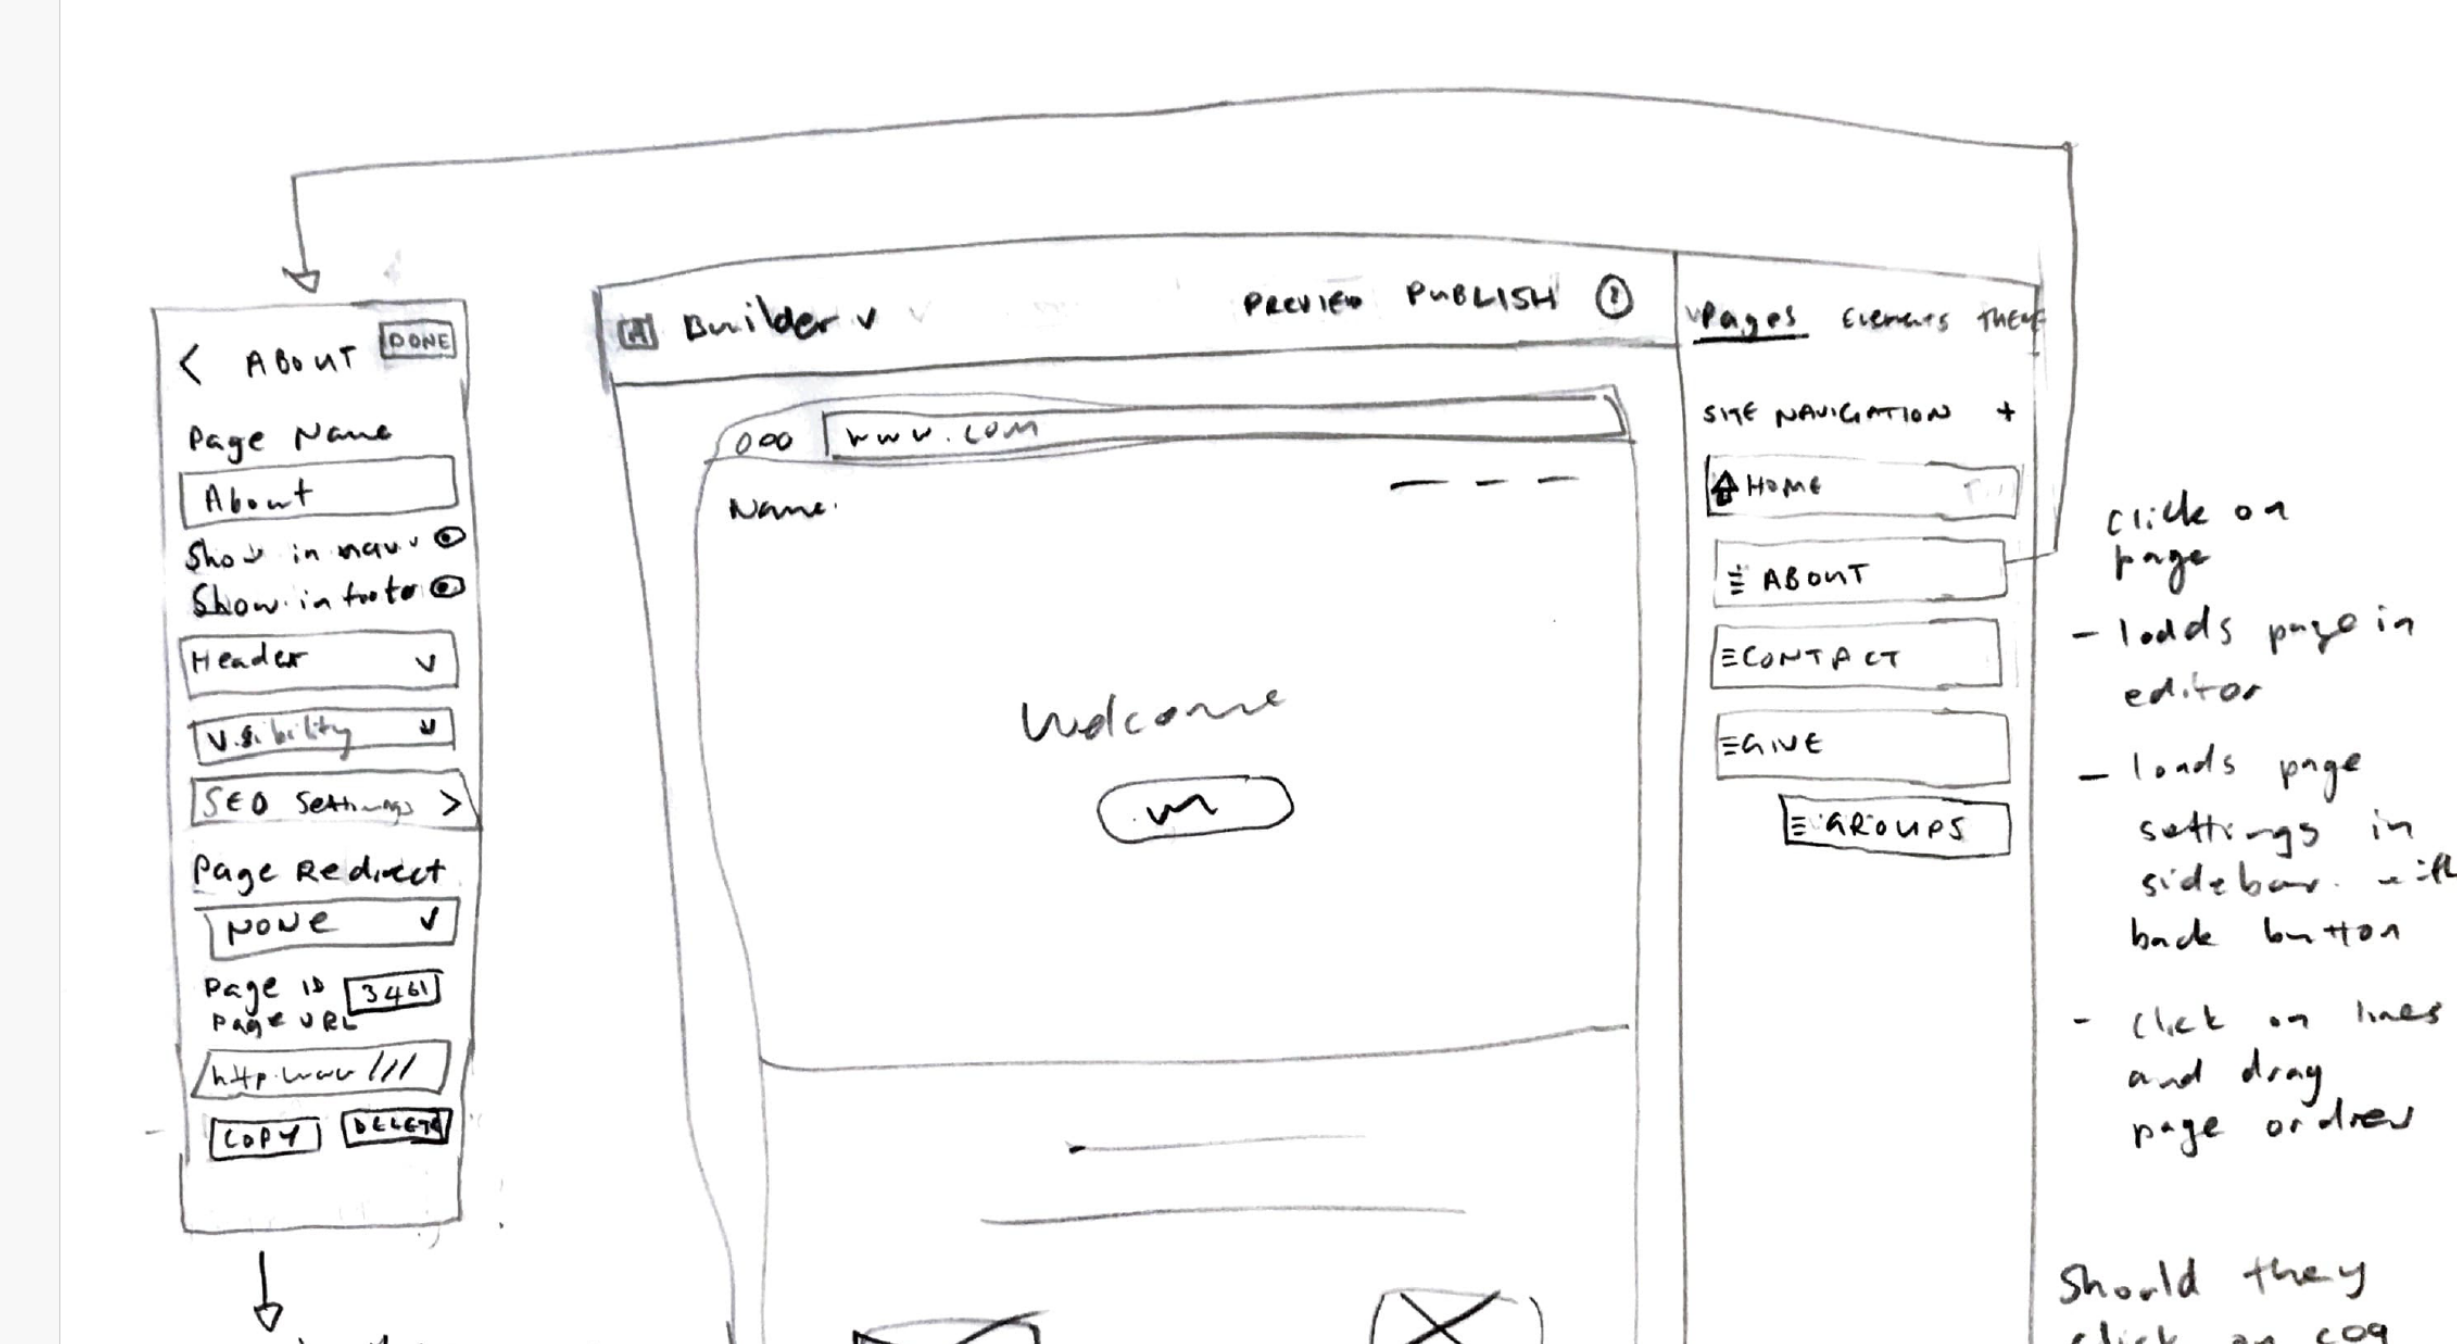 < ABOUT DONE
Page Name
About
Show in nav
Show in footer
Header
Visibility
SEO Settings >
Page Redirect
NONE
Page ID 3461
Page URL
http.www ///
COPY DELETE
Builder PREVIEW PUBLISH ?
www.com
Name.
Welcome
Pages Elements THEME
SITE NAVIGATION +
HOME
ABOUT
CONTACT
GIVE
GROUPS
click on
page
- loads page in
editor
- loads page
settings in
sidebar. with
back button
- click on lines
and drag
page ordrer
Should they
click on cog